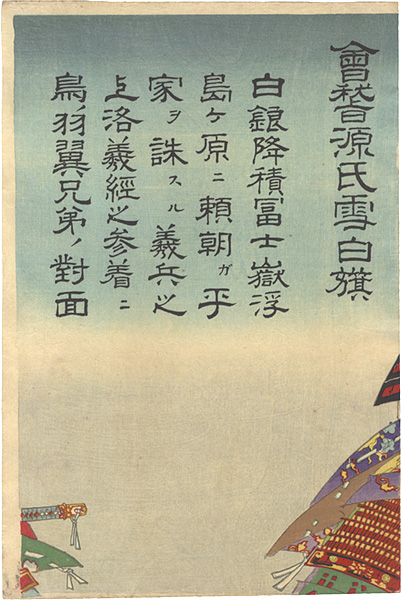 會稽源氏雪白旗
白銀降積冨士嶽浮
島ヶ原ニ頼朝ガ平
家ヲ誅スル義兵之
上洛義經之参着ニ
鳥羽翼兄弟ノ對面